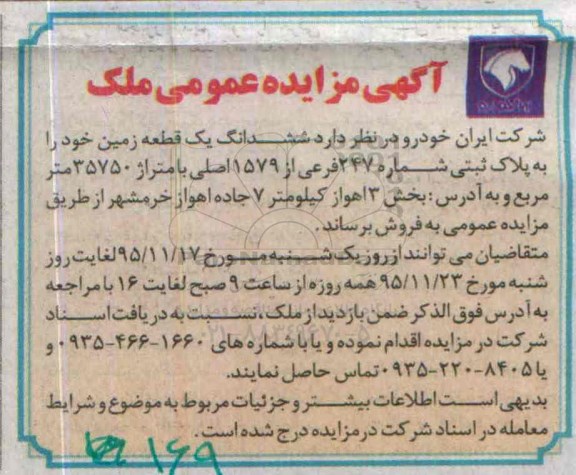 آگهی مزایده عمومی ملک
شرکت ایران خودرو در نظر دارد ششدانگ یک قطعه زمین خود را
به پلاک ثبتی شماره ۲۴۷ فرعی از ۱۵۷۹ اصلی با متراژ ۳۵۷۵۰ متر
مربع و به آدرس: بخش ۳ اهواز کیلومتر ۷ جاده اهواز خرمشهر از طریق
مزایده عمومی به فروش برساند.
متقاضیان می توانند از روز یک شنبه مورخ ۹۵/۱۱/۱۷ لغایت روز
شنبه مورخ ۹۵/۱۱/۲۳ همه روزه از ساعت ۹ صبح لغایت ۱۶ با مراجعه
به آدرس فوق الذکر ضمن بازدید از ملک، نسبت به دریافت اسناد
شرکت در مزایده اقدام نموده و یا با شماره های ۱۶۶۰-۴۶۶-۰۹۳۵ و
یا ۸۴۰۵-۲۲۰-۰۹۳۵ تماس حاصل نمایند.
بدیهی است اطلاعات بیشتر و جزئیات مربوط به موضوع و شرایط
معامله در اسناد شرکت در مزایده درج شده است.
۱۶۹